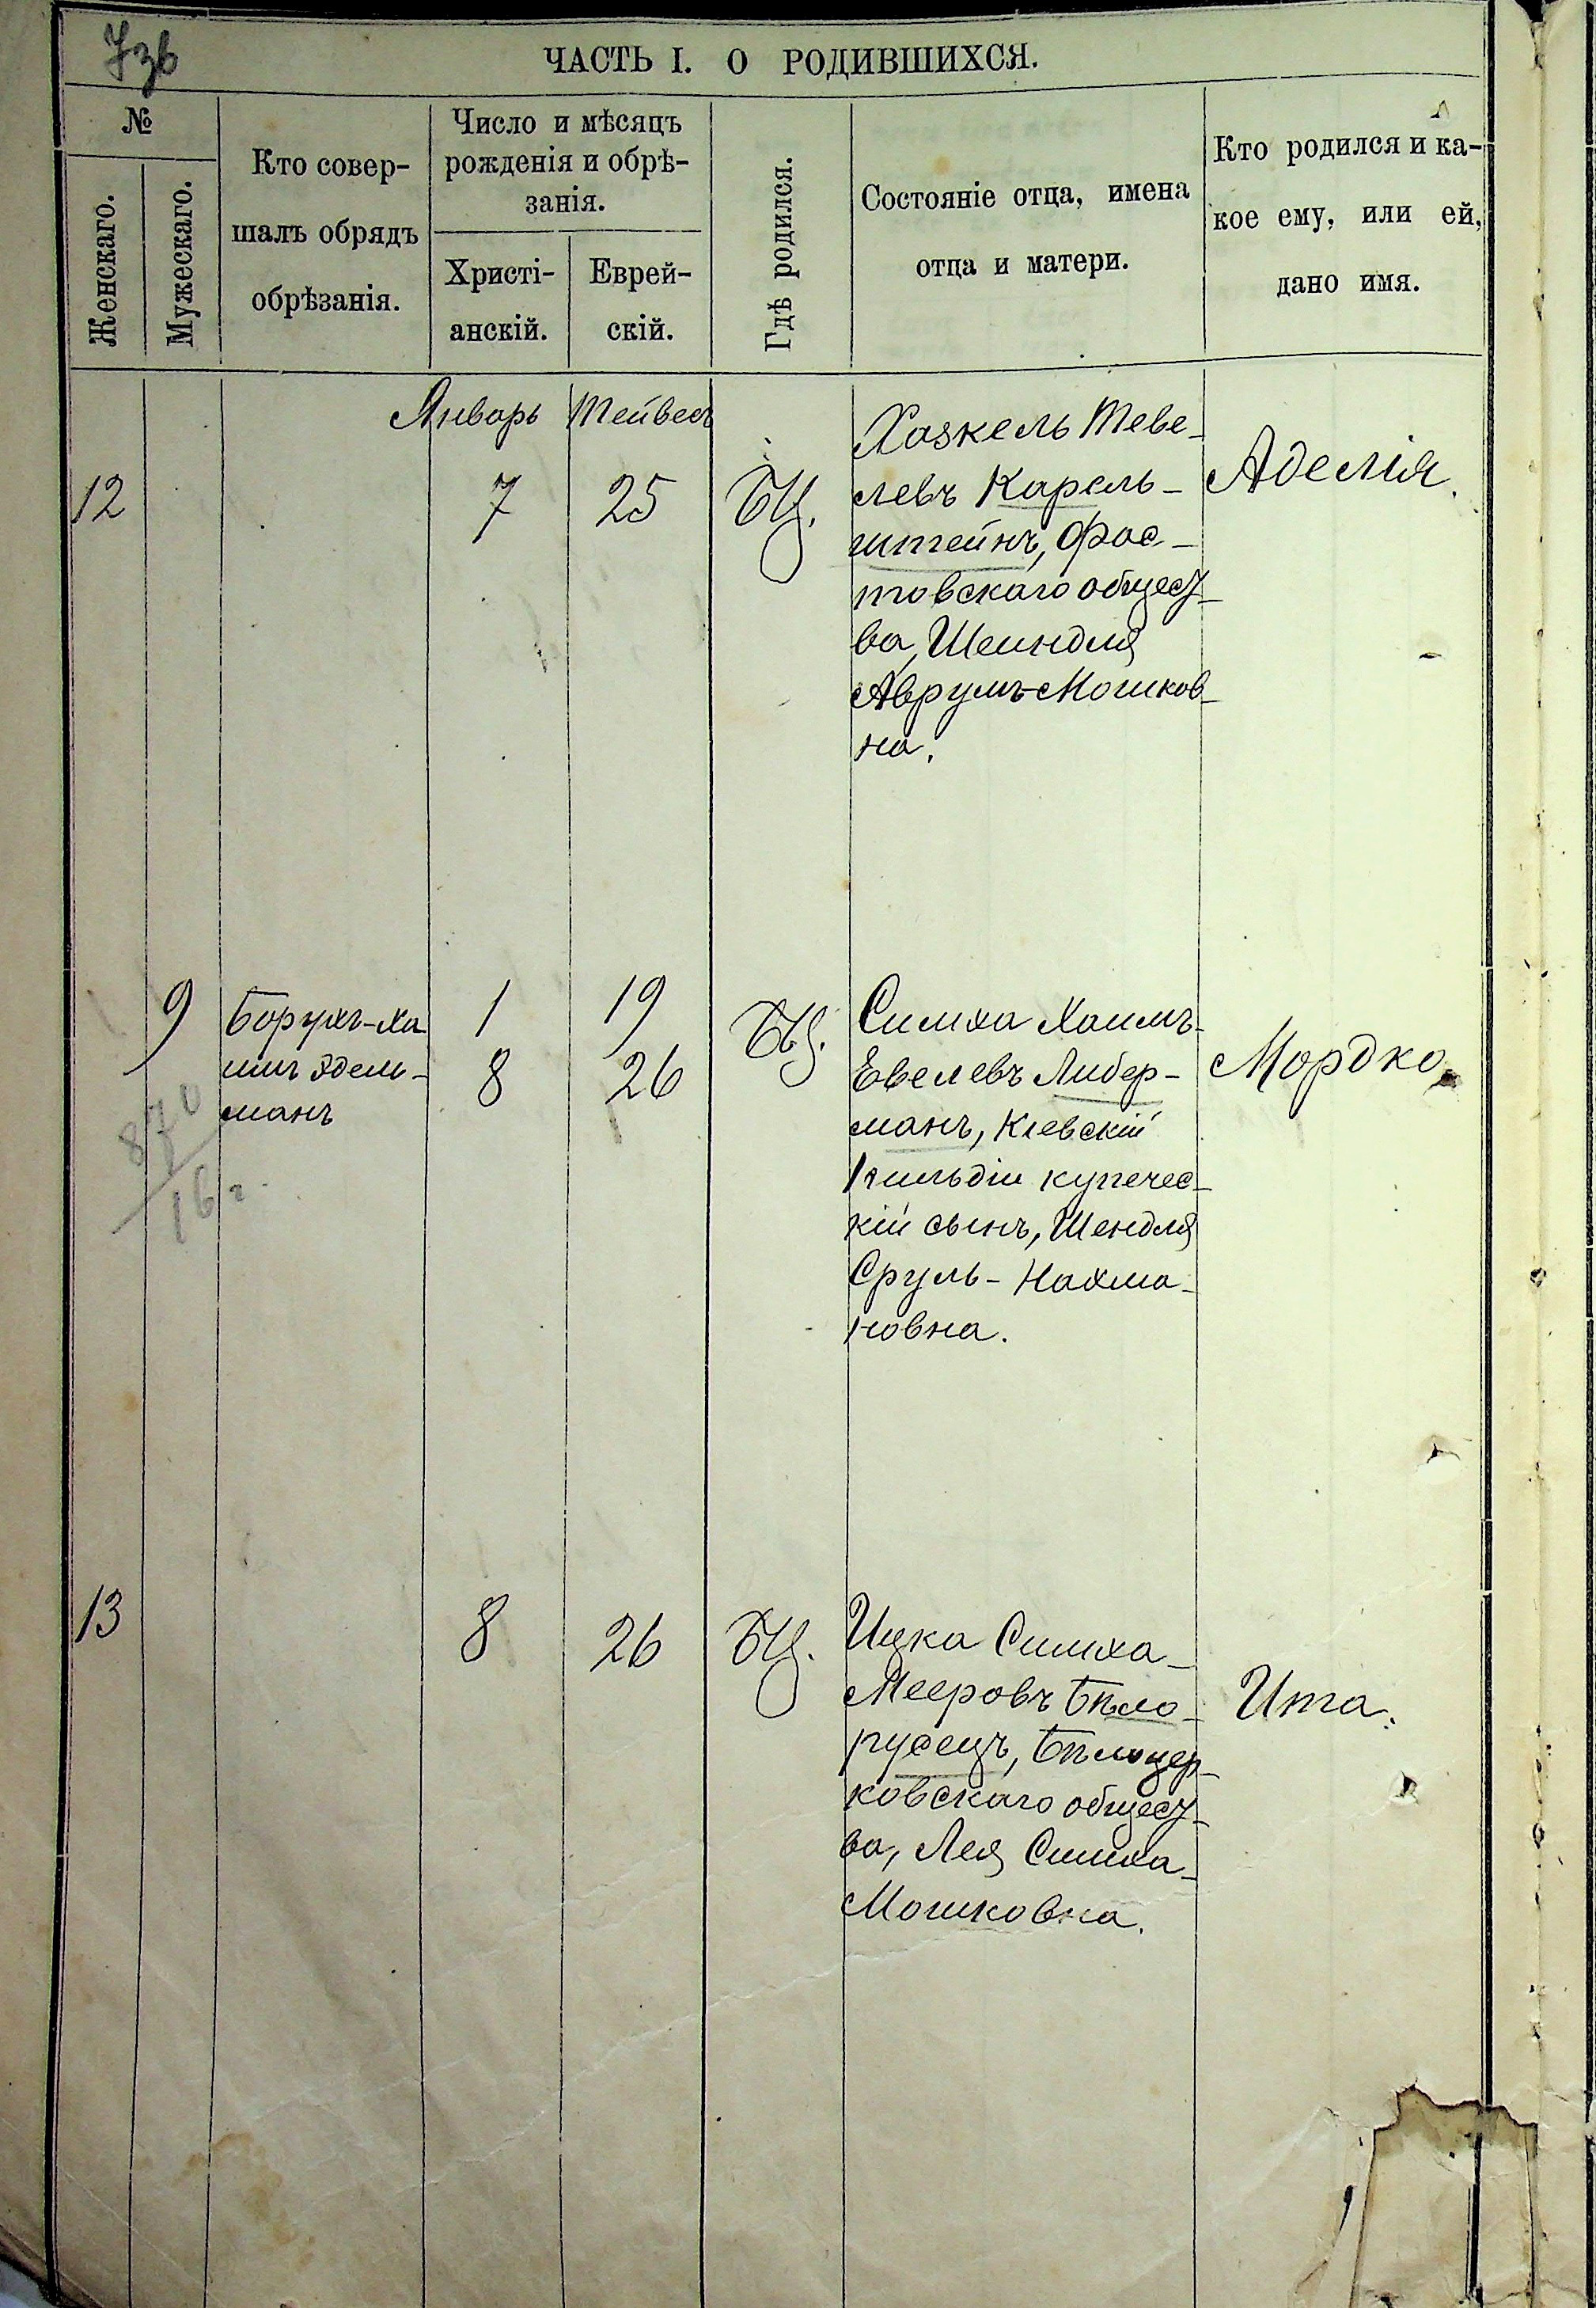 7зв
ЧАСТЬ I. О РОДИВШИХСЯ.
№
Женскаго.
Мужескаго.
Кто совер-
шалъ обрядъ
обрѣзанія.
Число и мѣсяцъ
рожденія и обрѣ-
занія.
Христі-
анскій.
Еврей-
скій.
Гдѣ родился.
Состояніе отца, имена
отца и матери.
Кто родился и ка-
кое ему, или ей,
дано имя.
Январь Тейвесъ
12
7
25
БЦ.
Хаскель Теве-
левъ Карель-
штейнъ, Фас-
товскаго общест-
ва, Шейндля
Аврумъ-Мошков-
на.
Аделія.
9
Борухъ-Ха
имъ Эдель-
манъ
1
19
8
26
БЦ.
Симха Хаимъ-
Евелевъ Либер-
манъ, Кіевскій
1 гильдіи купечес-
кій сынъ, Шендля
Сруль-Нахма-
новна.
Мордко.
870
16 г.
13
8
26
БЦ.
Ицка Симха-
Мееровъ Бѣло-
русецъ, Бѣлоцер-
ковскаго общест-
ва, Лея Симха-
Мошковна.
Ита.